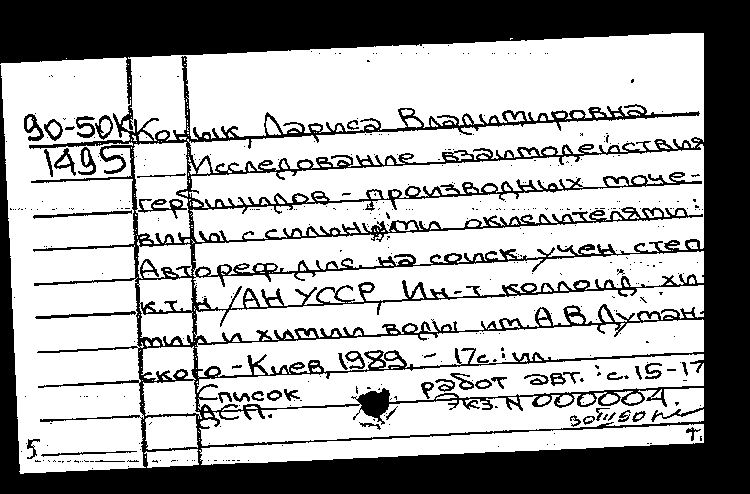 90-50К Конык, Лариса Владимировна.
1495 Исследование взаимодействия
гербицидов - производных моче-
вины с сильными окислителями:
Автореф. дис. на соиск. учен. степ
к.т.н. /АН УССР, Ин-т коллоид. хи-
мии и химии воды им. А.В.Думан-
ского - Киев, 1989. - 17с.: ил.
Список работ авт.: с.15-17
ДСП. Экз. N 000004.
5